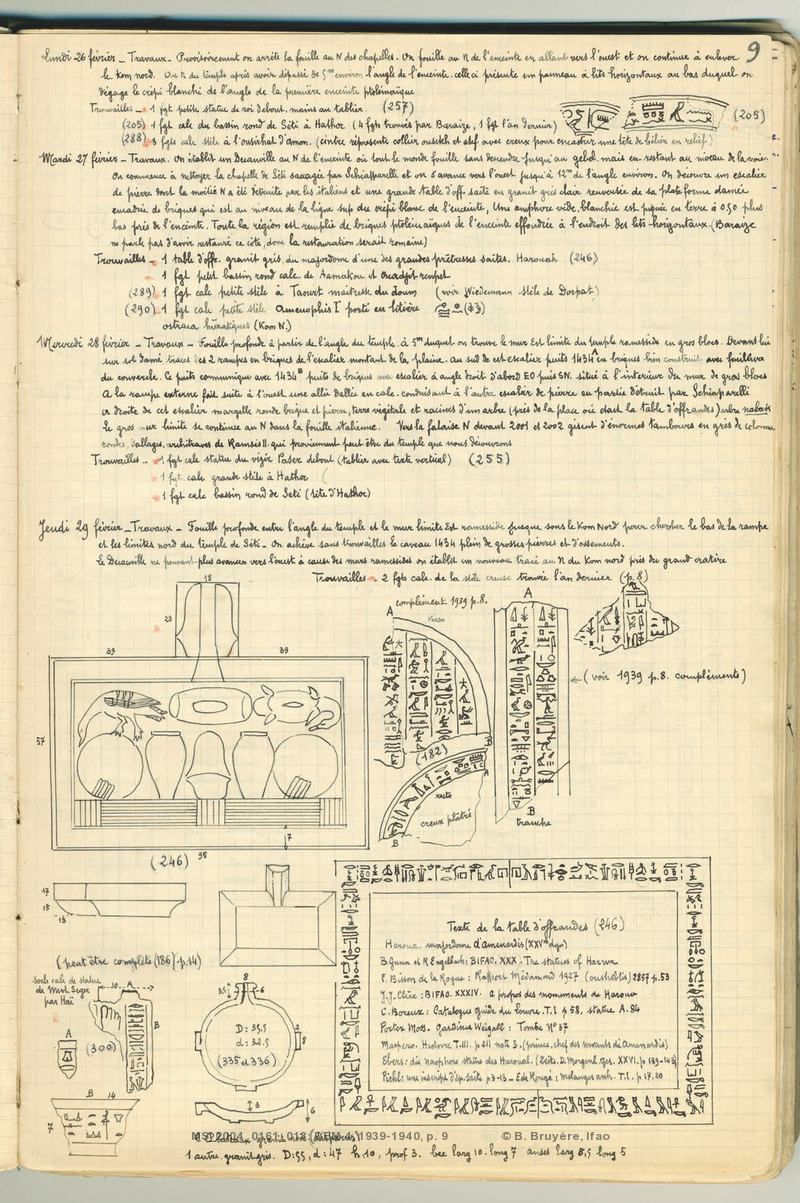 9
Lundi 26 février _ Travaux _ Provisoirement on arrête la fouille au N des chapelles. On fouille au N de l'enceinte en allant vers l'ouest et on continue à enlever
le Kom nord. Au N du temple après avoir dépassé de 5m environ l'angle de l'enceinte, celle ci présente un panneau à lits horizontaux au bas duquel on
dégage le crépi blanchi de l'angle de la première enceinte ptolémaïque
Trouvailles _ 1 fgt petite statue de roi debout, mains au tablier. (257)
(205) 1 fgt calc du bassin rond de Séti à Hathor (4 fgts trouvés par Baraize, 1 fgt l'an dernier) (205)
(288) 3 fgts calc stèle à l'ousirhat d'amon. (cintre représente collier ousekh et atef avec creux pour encastrer une tête de bélier en relief)
Mardi 27 février _ Travaux. On établit un Decauville au N de l'enceinte où tout le monde fouille sans descendre jusqu'au gebel, mais en restant au niveau de la voie
On commence à nettoyer la chapelle de Séti saccagée par Schiaparelli et on s'avance vers l'ouest jusqu'à 12m de l'angle environ. On découvre un escalier
de pierre dont la moitié N a été détruite par les italiens et une grande table d'off. saïte en granit gris clair renversée de sa plate forme damée
encadrée de briques qui est au niveau de la ligne sup du crépi blanc de l'enceinte, Une amphore vide, blanchie est piquée en terre à 0,50 plus
bas près de l'enceinte. Toute la région est remplie de briques ptolémaïques de l'enceinte effondrée à l'endroit des lits horizontaux. (Baraize
ne parle pas d'avoir restauré ce côté, donc la restauration serait romaine)
Trouvailles _ 1 table d'offr. granit gris, du majordome d'une des grandes prêtresses saïtes, Harouah (246)
1 fgt petit bassin rond calc. de Aamakou et Ouadjit renpet
(289) 1 fgt calc petite stèle à Taourt maîtresse du doum (voir Wiedemann stèle de Dorpat)
(290) 1 fgt calc petite stèle Aménophis I porté en litière
ostraca hiératiques (Kom N.)
Mercredi 28 février _ Travaux _ Fouille profonde à partir de l'angle du temple, à 5m duquel on trouve le mur Est limite du temple ramesside en gros blocs. Devant lui
sur sol damé traces des 2 rampes en briques de l'escalier montant de la plaine. au sud de cet escalier puits 1434A en briques bien construit avec feuillure
du couvercle. Ce puits communique avec 1434B puits de briques avec escalier à angle droit d'abord EO puis SN. situé à l'intérieur du mur de gros blocs
A la rampe externe fait suite à l'ouest une allée dallée en calc. conduisant à l'autre escalier de pierre en partie détruit par Schiaparelli
à droite de cet escalier margelle ronde brique et pierre, terre végétale et racines d'un arbre (près de la place où était la table d'offrandes) arbre nabak
Le gros mur limite se continue au N dans la fouille italienne. Vers la falaise N devant 2001 et 2002 gisent d'énormes tambours en grès de colonnes
rondes, dallages, architraves de Ramsès II. qui proviennent peut être du temple que nous découvrons
Trouvailles _ 1 fgt calc statue du vizir Paser debout (tablier avec texte vertical) (255)
1 fgt calc grande stèle à Hathor
1 fgt calc bassin rond de Seti (tête d'Hathor)
Jeudi 29 février _ Travaux _ Fouille profonde entre l'angle du temple et le mur limite Est ramesside jusque sous le Kom Nord pour chercher le bas de la rampe
et les limites nord du temple de Séti _ On achève sans trouvailles le caveau 1434 plein de grosses pierres et d'ossements.
Le Decauville ne pouvant plus avancer vers l'ouest à cause des murs ramessides on établit un nouveau tracé au N du Kom nord près du grand cratère
Trouvailles _ 2 fgts calc. de la stèle creuse trouvée l'an dernier (p. 8)
18
23
39
39
57
7
95
(246)
complément 1939 p. 8.
A
verso
(182)
B
recto
creux plâtré
B
A
B
tranche
← (voir 1939 p. 8. compléments)
17
15
18
(peut être complète (186) p. 14)
socle calc de statue
de Mert Seger
par Haï
10
A
B
A
(300)
B
14
7
8
3,5
6
D: 39,5
d: 32,5
(335 et 336)
2
8
3
6
Texte de la table d'offrandes (246)
Haroua. majordome d'amenardis (XXVe dyn)
B. Gunn et R. Engelbach: BIFAO. XXX. The statues of Harwa
F. Bisson de la Roque: Rapport Médamoud 1927 (oushebtis) 2857 p. 53
J.J. Clère: BIFAO. XXXIV. a propos des monuments de Haroua
C. Boreux: Catalogue Guide du Louvre. T. I p 58. statue A. 84
Porter Moss. Gardiner Weigall: Tombe No 37
Maspero. Histoire T. III. p 211 note 3. (prince, chef des servants d'Amenardis)
Ebers: die naophore statue des Harual. (Zeits. D. Morgenl. Ges. XXVI. p 139-145)
Piehl: une inscript d'ép. Saïte p 3-13 _ E de Rougé; mélanges arch. T. I. p 17. 20
MS_2004_0161_012 (Bruyère) 1939-1940, p. 9 © B. Bruyère, Ifao
1 autre. granit gris. D: 55, d: 47 h. 10, prof 3. bec larg 10. long 7 anses larg 8,5 long 5